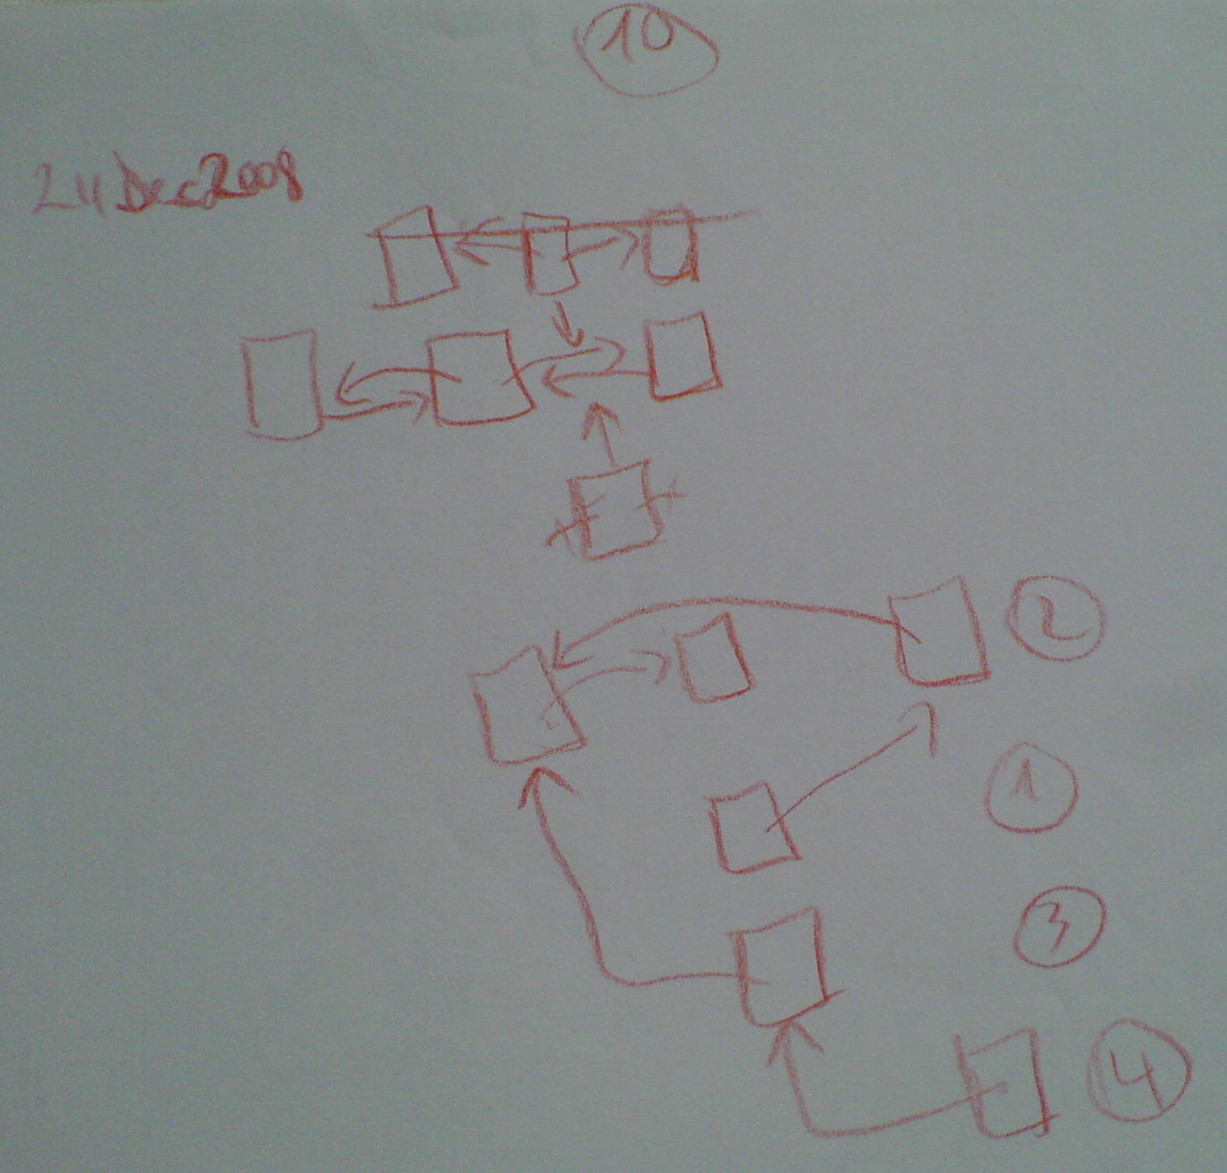 10
24 Dec 2008
2
1
3
4